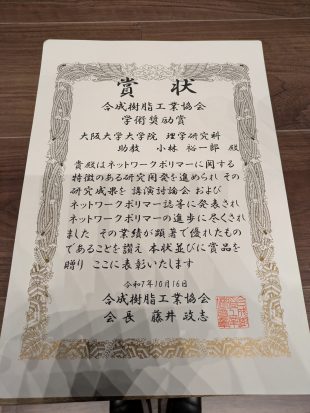 賞状
合成樹脂工業協会
学術奨励賞
大阪大学大学院 理学研究科
助教 小林 裕一郎 殿
貴殿はネットワークポリマーに関する
特徴のある研究開発を進められ その
研究成果を 講演討論会 および
ネットワークポリマー誌等に発表され
ネットワークポリマーの進歩に尽くされ
ました その業績が顕著で優れたもの
であることを讃え 本状並びに賞品を
贈り ここに表彰いたします
令和7年10月16日
合成樹脂工業協会
会長 藤井 政志